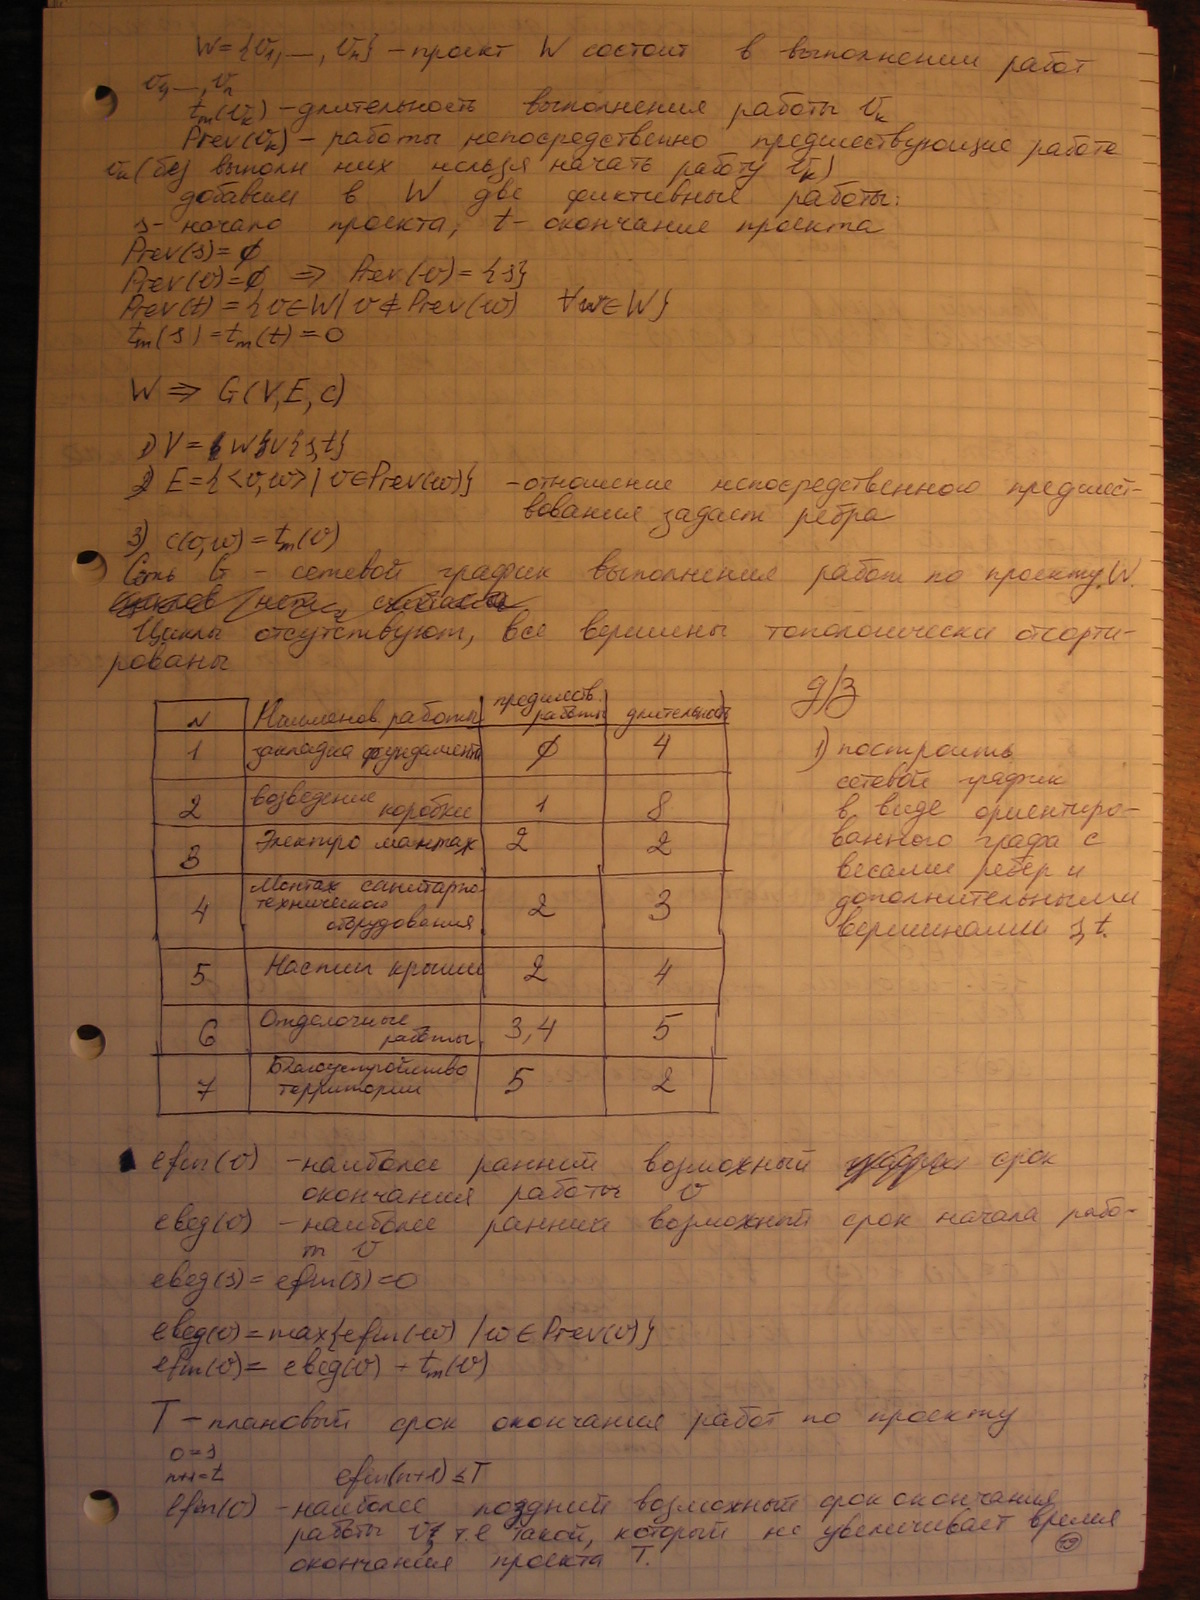 W={v1,...,vn} - проект W состоит в выполнении работ
v1,...,vn
tm(vk) - длительность выполнения работы vk
Prev(vk) - работы непосредственно предшествующие работе
vk (без выполн них нельзя начать работу vk)
добавим в W две фиктивные работы:
s - начало проекта, t - окончание проекта
Prev(s)=∅
Prev(v)=∅ ⇒ Prev(v)={s}
Prev(t)={v∈W| v∉Prev(w) ∀w∈W}
tm(s)=tm(t)=0
W ⇒ G(V,E,c)
1) V = W∪{s,t}
2) E={<v,w>| v∈Prev(w)} - отношение непосредственного предшест-
вования задаст ребра
3) c(v,w)=tm(v)
Сеть G - сетевой график выполнения работ по проекту W.
Циклы отсутствуют, все вершины топологически отсорти-
рованы
N Наименов. работы предшеств. работы длительность
1 закладка фундамента ∅ 4
2 возведение коробки 1 8
3 Электро монтаж 2 2
4 Монтаж санитарно-
технического
оборудования 2 3
5 Настил крыши 2 4
6 Отделочные
работы 3,4 5
7 Благоустройство
территории 5 2
Д/З
1) построить
сетевой график
в виде ориентиро-
ванного графа с
весами ребер и
дополнительными
вершинами s, t.
efin(v) - наиболее ранний возможный срок
окончания работы v
ebeg(v) - наиболее ранний возможный срок начала рабо-
т v
ebeg(s)=efin(s)=0
ebeg(v)=max{efin(w) | w∈Prev(v)}
efin(v)= ebeg(v) + tm(v)
T - плановый срок окончания работ по проекту
0=s
n+1=t efin(n+1)≤T
lfin(v) - наиболее поздний возможный срок окончания
работы v, т.е такой, который не увеличивает время
окончания проекта T.
19